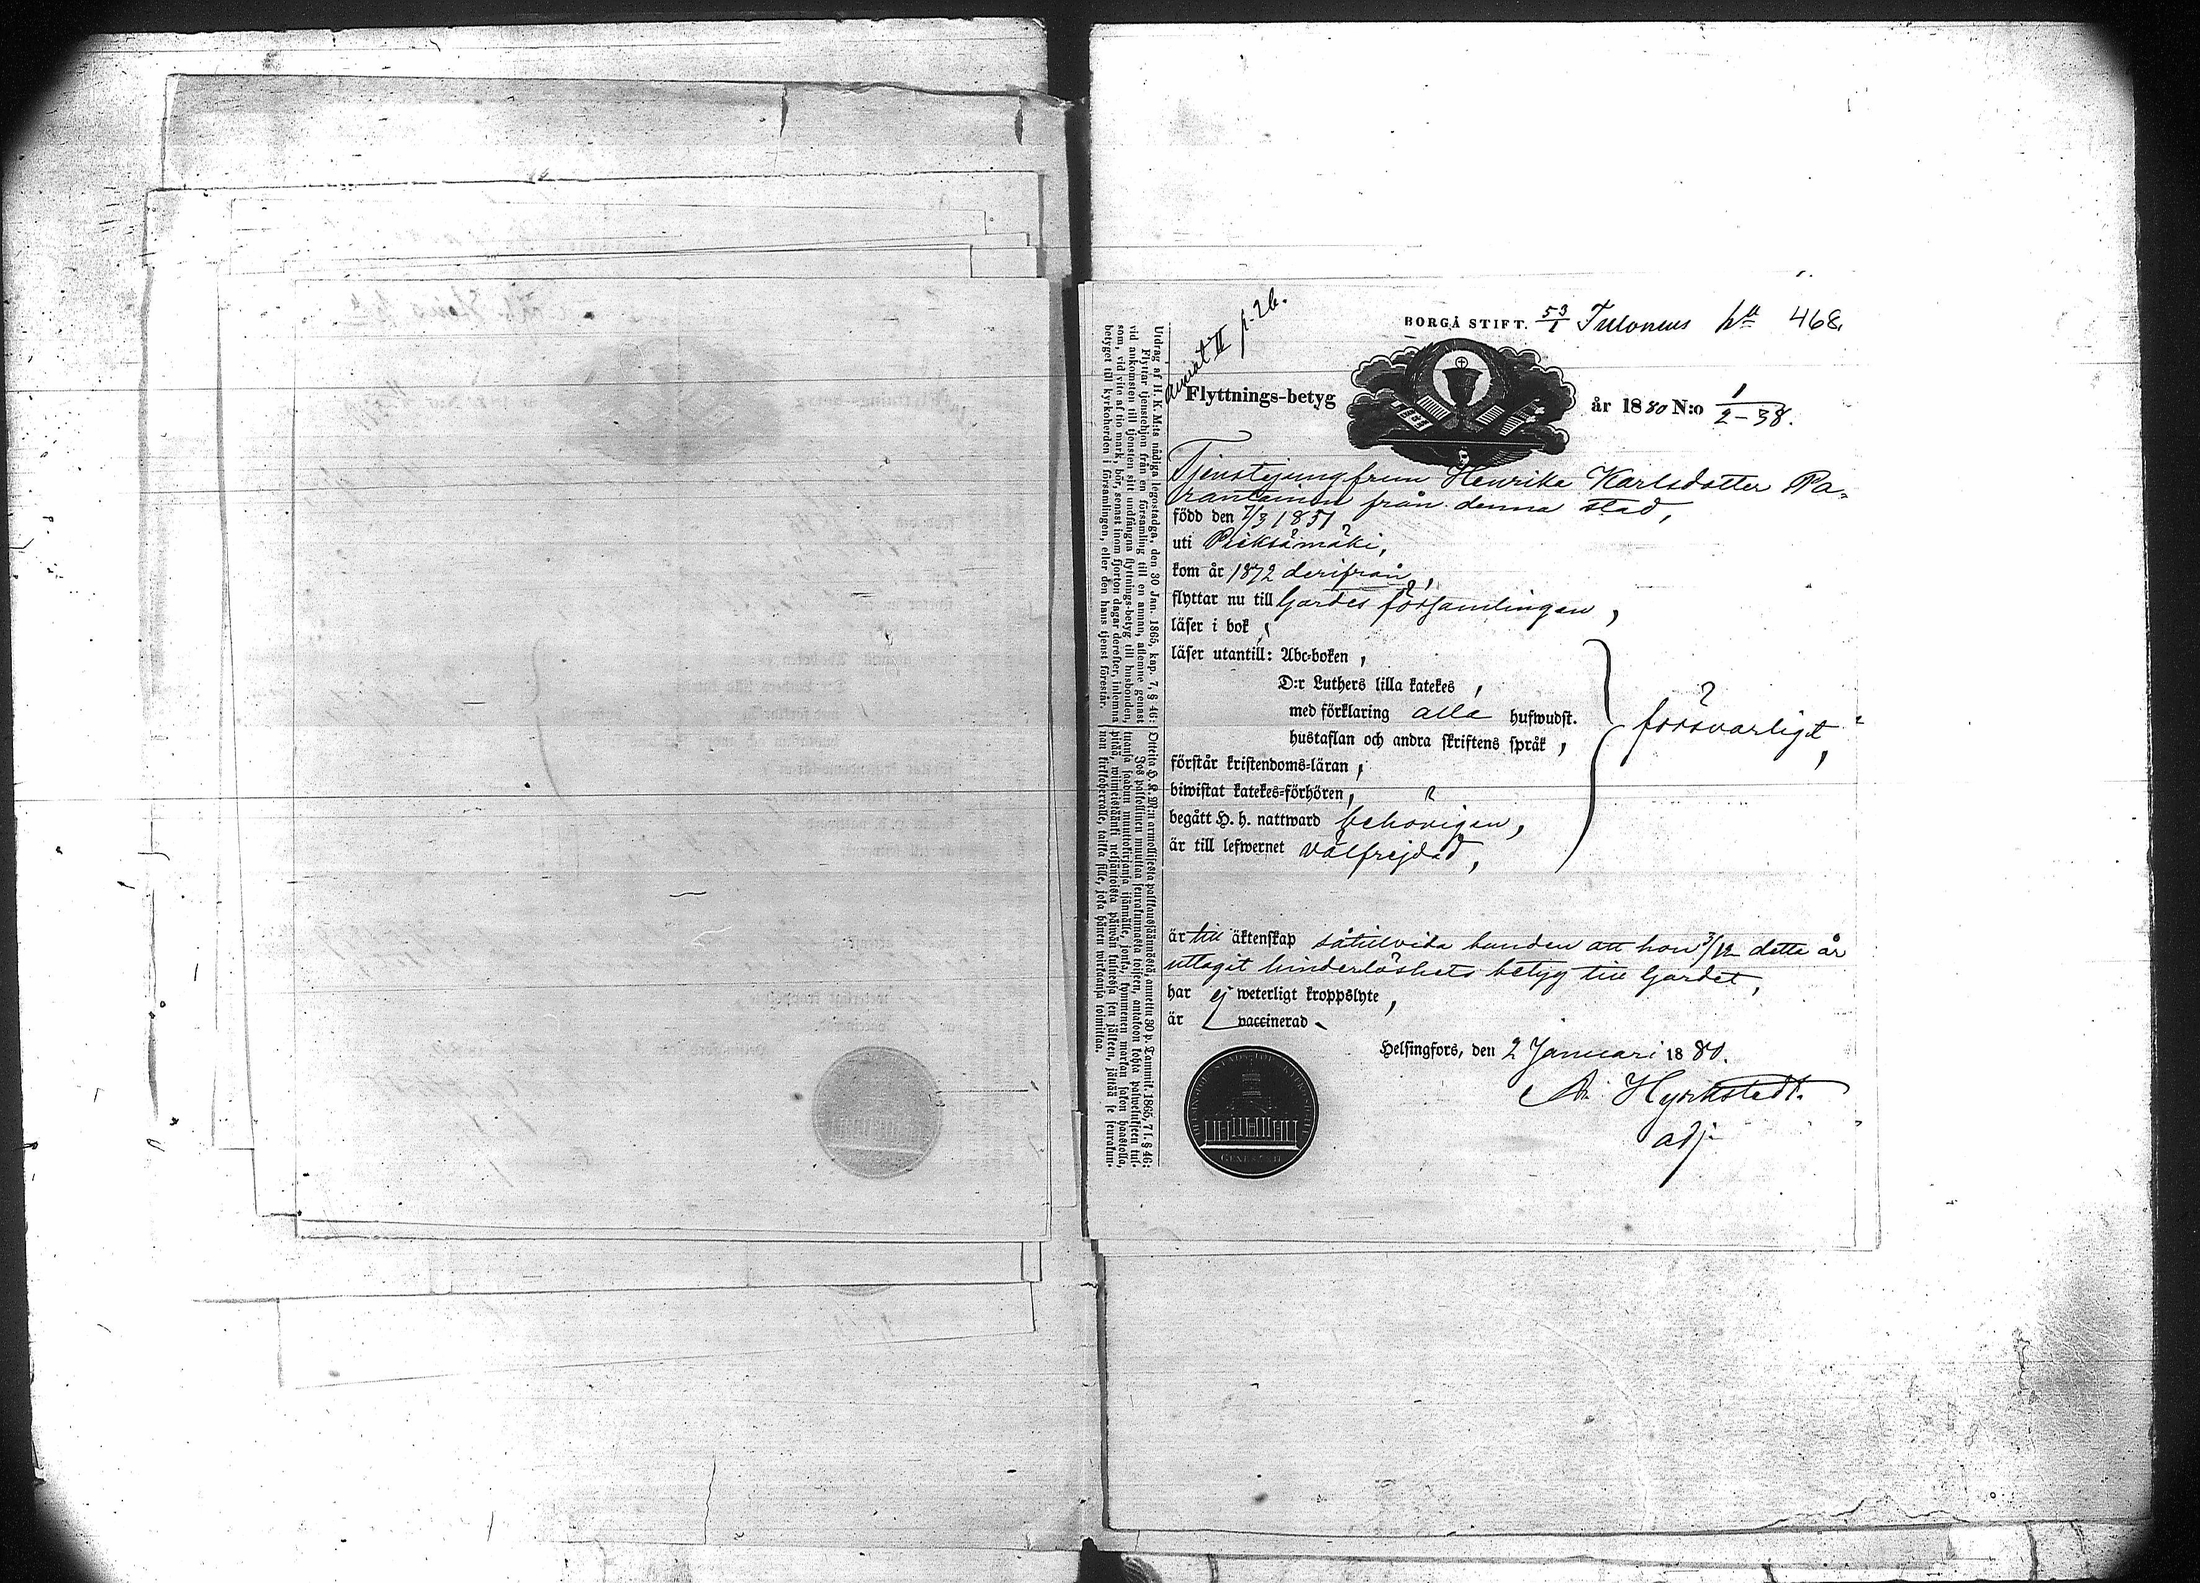 BORGÅ STIFT. 53/1 Tulonens 468.
p. 26.
Flyttnings-betyg år 1880 N:o 1/2-38.
Tjenstejungfrun Henrika Karlsdotter Pa-
rantainen från denna stad,
född den 7/3 1851
uti Pieksämäki,
kom år 1872 derifrån,
flyttar nu till Gardes församlingen,
läser i bok,
läser utantill: Abc-boken,
D:r Luthers lilla katekes,
med förklaring alla hufwudst.
hustaflan och andra skriftens språk,
försvarligt,
förstår kristendoms-läran,
biwistat katekes-förhören,
begått H. h. nattward behörigen,
är till lefwernet välfrejdad,
är till äktenskap såtillvida bunden att hon 3/12 detta år
uttagit hinderlöshets betyg till Gardet,
har ej weterligt kroppslyte,
är vaccinerad.
Helsingfors, den 2 Januari 1880.
Hyrkstedt.
adj.
Utdrag af H. K. M:ts nådiga legostadga, den 30 Jan. 1865, kap. 7, § 46:
Flyttar tjenstehjon från en församling till en annan, aflemne genast
vid ankomsten till tjensten sitt undfångna flyttnings-betyg till husbonden,
som, vid vite af tio mark, bör, sednast inom fjorton dagar derefter, inlemna
betyget till kyrkoherden i församlingen, eller den hans tjenst förestår.
Otteita H. K. M:n armollisesta palkkaussäännöstä, annettu 30 p. Tammik. 1865, 7 l. § 46:
Jos palkollinen muuttaa seurakunnasta toiseen, antakoon kohta palwelukseen tul-
tuansa saadun muuttokirjansa isännälle, jonka, kymmenen markan sakon haastolla,
pitää, wiimeistäänki neljäntoista päiwän kuluessa sen jälkeen, jättää se seurakun-
nan kirkkoherralle, taikka sille, joka hänen wirkaansa toimittaa.